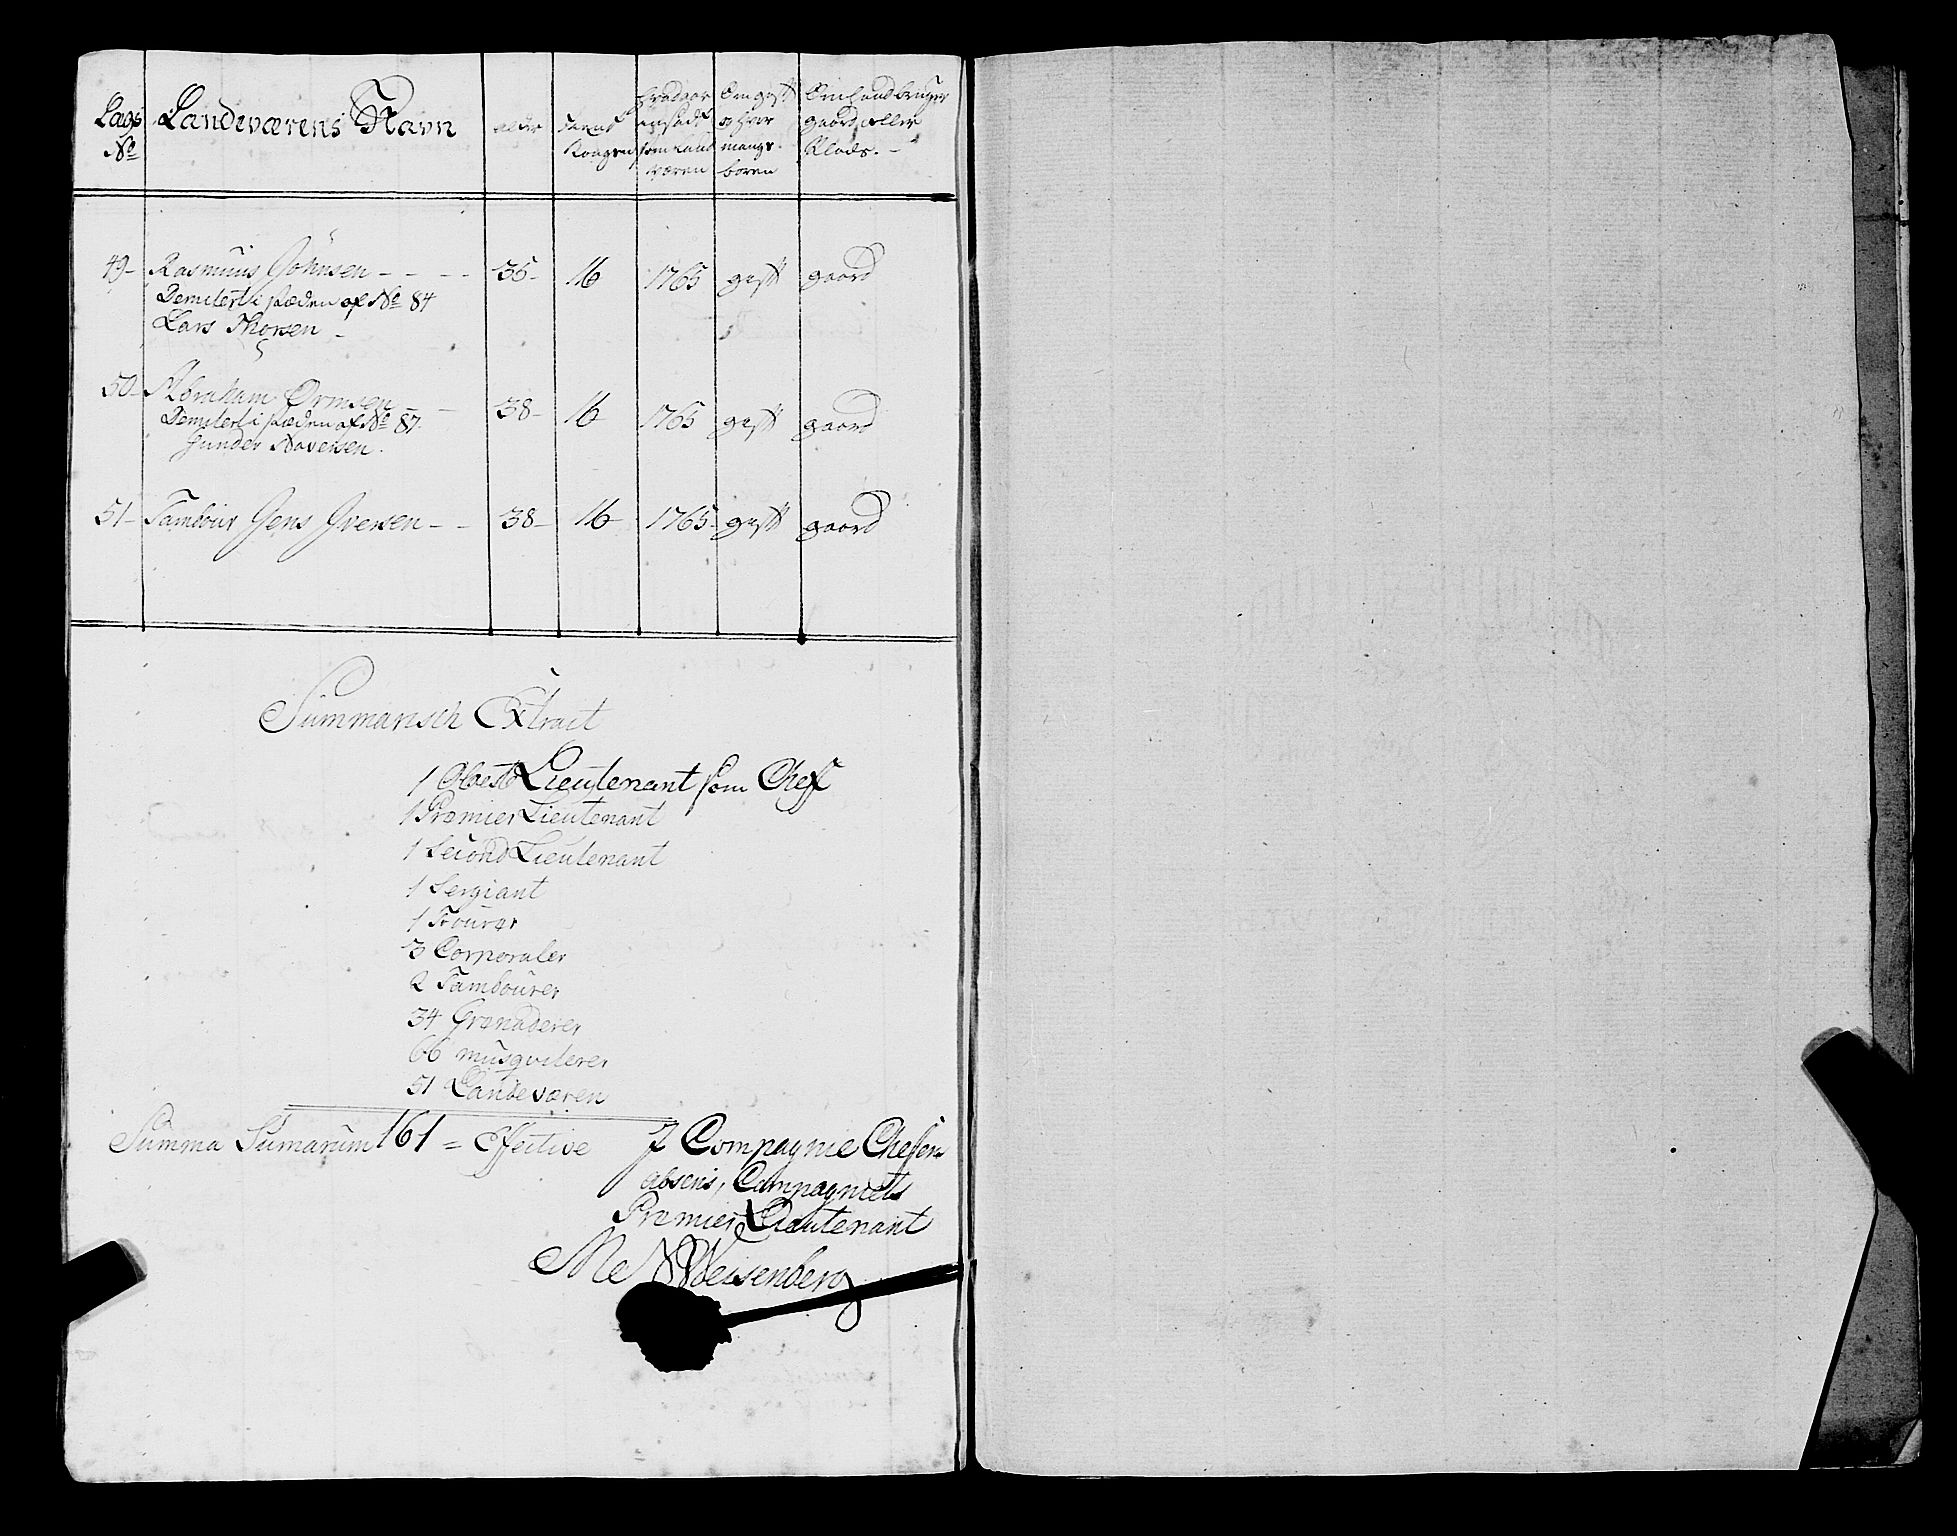 Lægs No Landeværens Navn alder tient Kongen hvad aar ansadt som Land væren Om gift og hvor mange børn Om hand bruger gaard eller Plads.
49 Rasmus Johnsen 35 16 1765 gift gaard
Demitert i stæden af No 84
Lars Thorsen
50 Abraham Ormsen 38 16 1765 gift gaard
Demitert i stæden af No 87
Gunder
51 Tambour Jens Iversen 38 16 1765 gift gaard
Summarisch Extract
1 Obest Lieutenant som Chef
1 Premier Lieutenant
1 Second Lieutenant
1 Sergiant
1 Fourer
3 Corporaler
2 Tambourer
34 Granaderer
66 musqvilerer
51 Landeværen
Summa Sumarum 161 = Effective
J Compagnie Chefens
absens, Compagniets
Premier Lieutenant
Weisenberg